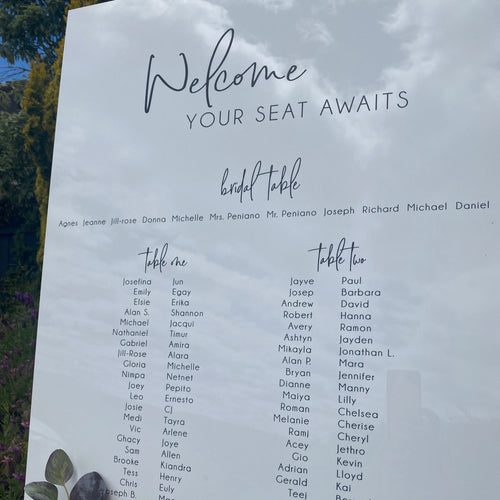 Welcome
YOUR SEAT AWAITS
bridal table
Agnes Jeanne Jill-rose Donna Michelle Mrs. Peniano Mr. Peniano Joseph Richard Michael Daniel
table one
Josefina Jun
Emily Egay
Elsie Erika
Alan S. Shannon
Michael Jacqui
Nathaniel Timur
Gabriel Amira
Jill-Rose Alara
Gloria Michelle
Nimpa Netnet
Joey Pepito
Leo Ernesto
Josie CJ
Medi Tayra
Vic Arlene
Ghacy Joye
Sam Allen
Brooke Kiandra
Tess Henry
Chris Euly
Joseph B. Max
table two
Jayve Paul
Josep Barbara
Andrew David
Robert Hanna
Avery Ramon
Ashtyn Jayden
Mikayla Jonathan L.
Alan P. Mara
Bryan Jennifer
Dianne Manny
Maiya Lilly
Roman Chelsea
Melanie Cherise
Ramj Cheryl
Acey Jethro
Gio Kevin
Adrian Lloyd
Gerald Kai
Teej